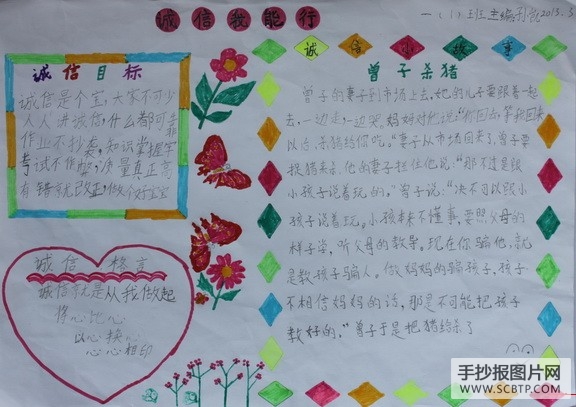 诚信我能行
一（1）班 主编 2015.5
诚信目标
诚信是个宝，大家不可少
人人讲诚信，什么都可靠
作业不抄袭，知识掌握牢
考试不作弊，质量真正高
有错就改正，做个好宝宝
诚信格言
诚信就是从我做起
将心比心
以心换心
心心相印
诚信小故事
曾子杀猪
曾子的妻子到市场上去，她的儿子要跟着一起
去，一边走，一边哭。妈妈对他说：“你回去，等我回来
以后，杀猪给你吃。”妻子从市场回来了，曾子要
捉猪来杀，他的妻子拦住他说：“那不过是跟
小孩子说着玩的。”曾子说：“决不可以跟小
孩子说着玩。小孩本来不懂事，要照父母的
样子学，听父母的教导。现在你骗他，就
是教孩子骗人。做妈妈的骗孩子，孩子
不相信妈妈的话，那是不可能把孩子
教好的。”曾子于是把猪给杀了
手抄报图片网
WWW.SCBTP.COM